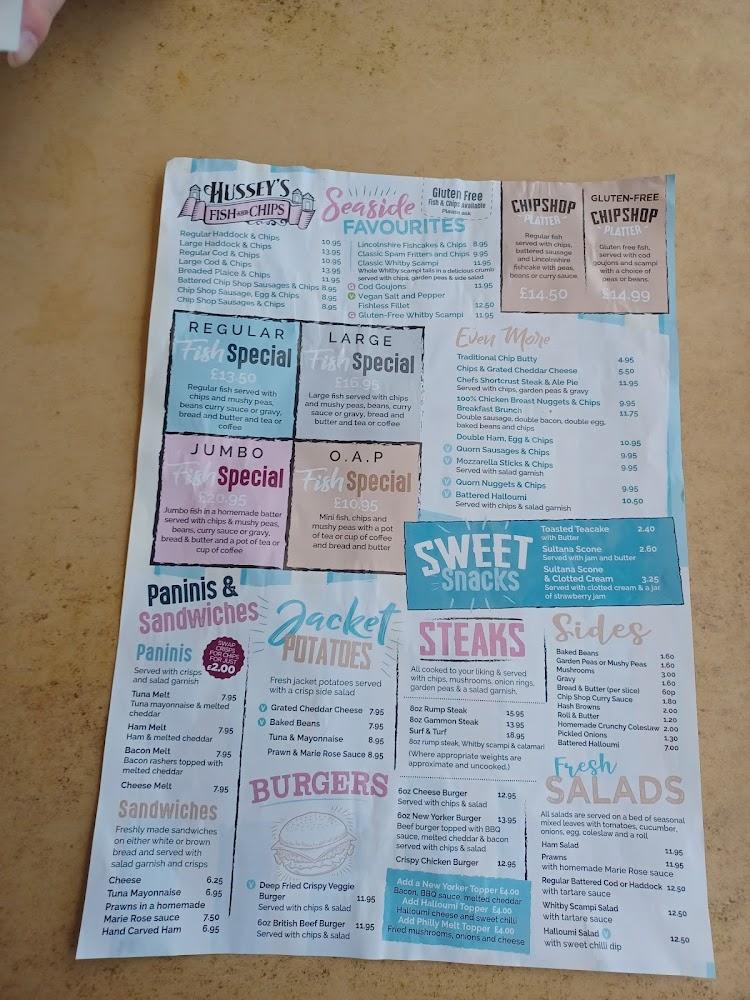 HUSSEY'S
FISH AND CHIPS
Regular Haddock & Chips 10.95
Large Haddock & Chips 13.95
Regular Cod & Chips 10.95
Large Cod & Chips 13.95
Breaded Plaice & Chips 11.95
Battered Chip Shop Sausages & Chips 8.95
Chip Shop Sausage, Egg & Chips 8.95
Chip Shop Sausages & Chips 8.95
Seaside
FAVOURITES
Gluten Free
Fish & Chips available
Please ask
Lincolnshire Fishcakes & Chips 8.95
Classic Spam Fritters and Chips 9.95
Classic Whitby Scampi 11.95
Whole Whitby scampi tails in a delicious crumb
served with chips, garden peas & side salad
G Cod Goujons 11.95
V Vegan Salt and Pepper
Fishless Fillet 12.50
G Gluten-Free Whitby Scampi 11.95
CHIPSHOP
PLATTER
Regular fish
served with chips,
battered sausage
and Lincolnshire
fishcake with peas,
beans or curry sauce.
£14.50
GLUTEN-FREE
CHIPSHOP
PLATTER
Gluten free fish,
served with cod
goujons and scampi
with a choice of
peas or beans.
£14.99
REGULAR
Fish Special
£13.50
Regular fish served with
chips and mushy peas,
beans curry sauce or gravy,
bread and butter and tea or
coffee
LARGE
Fish Special
£16.95
Large fish served with chips
and mushy peas, beans, curry
sauce or gravy, bread and
butter and tea or coffee
JUMBO
Fish Special
£20.95
Jumbo fish in a homemade batter
served with chips & mushy peas,
beans, curry sauce or gravy,
bread & butter and a pot of tea or
cup of coffee
O.A.P
Fish Special
£10.95
Mini fish, chips and
mushy peas with a pot
of tea or cup of coffee
and bread and butter
Even More
Traditional Chip Butty 4.95
Chips & Grated Cheddar Cheese 5.50
Chefs Shortcrust Steak & Ale Pie 11.95
Served with chips, garden peas & gravy
100% Chicken Breast Nuggets & Chips 9.95
Breakfast Brunch 11.75
Double sausage, double bacon, double egg,
baked beans and chips
Double Ham, Egg & Chips 10.95
V Quorn Sausages & Chips 9.95
V Mozzarella Sticks & Chips 9.95
Served with salad garnish
V Quorn Nuggets & Chips 9.95
V Battered Halloumi 10.50
Served with chips & salad garnish
SWEET
Snacks
Toasted Teacake 2.40
with Butter
Sultana Scone 2.60
Served with jam and butter
Sultana Scone
& Clotted Cream 3.25
Served with clotted cream & a jar
of strawberry jam
Paninis &
Sandwiches
Paninis
Served with crisps
and salad garnish
SWAP
CRISPS
FOR CHIPS
FOR JUST
£2.00
Tuna Melt 7.95
Tuna mayonnaise & melted
cheddar
Ham Melt 7.95
Ham & melted cheddar
Bacon Melt 7.95
Bacon rashers topped with
melted cheddar
Cheese Melt 7.95
Sandwiches
Freshly made sandwiches
on either white or brown
bread and served with
salad garnish and crisps
Cheese 6.25
Tuna Mayonnaise 6.95
Prawns in a homemade
Marie Rose sauce 7.50
Hand Carved Ham 6.95
Jacket
POTATOES
Fresh jacket potatoes served
with a crisp side salad
V Grated Cheddar Cheese 7.95
V Baked Beans 7.95
Tuna & Mayonnaise 8.95
Prawn & Marie Rose Sauce 8.95
BURGERS
V Deep Fried Crispy Veggie
Burger 11.95
Served with chips & salad
6oz British Beef Burger 11.95
Served with chips & salad
STEAKS
All cooked to your liking & served
with chips, mushrooms, onion rings,
garden peas & a salad garnish.
8oz Rump Steak 15.95
8oz Gammon Steak 13.95
Surf & Turf 18.95
8oz rump steak, Whitby scampi & calamari
(Where appropriate weights are
approximate and uncooked.)
6oz Cheese Burger 12.95
Served with chips & salad
6oz New Yorker Burger 13.95
Beef burger topped with BBQ
sauce, melted cheddar & bacon
served with chips & salad
Crispy Chicken Burger 12.95
Add a New Yorker Topper £4.00
Bacon, BBQ sauce, melted cheddar
Add Halloumi Topper £4.00
Halloumi cheese and sweet chilli
Add Philly Melt Topper £4.00
Fried mushrooms, onions and cheese
Sides
Baked Beans 1.60
Garden Peas or Mushy Peas 1.60
Mushrooms 3.00
Gravy 1.60
Bread & Butter (per slice) 60p
Chip Shop Curry Sauce 1.80
Hash Browns 2.00
Roll & Butter 1.20
Homemade Crunchy Coleslaw 2.00
Pickled Onions 1.30
Battered Halloumi 7.00
Fresh
SALADS
All salads are served on a bed of seasonal
mixed leaves with tomatoes, cucumber,
onions, egg, coleslaw and a roll
Ham Salad 11.95
Prawns 11.95
with homemade Marie Rose sauce
Regular Battered Cod or Haddock 12.50
with tartare sauce
Whitby Scampi Salad 12.50
with tartare sauce
Halloumi Salad V 12.50
with sweet chilli dip